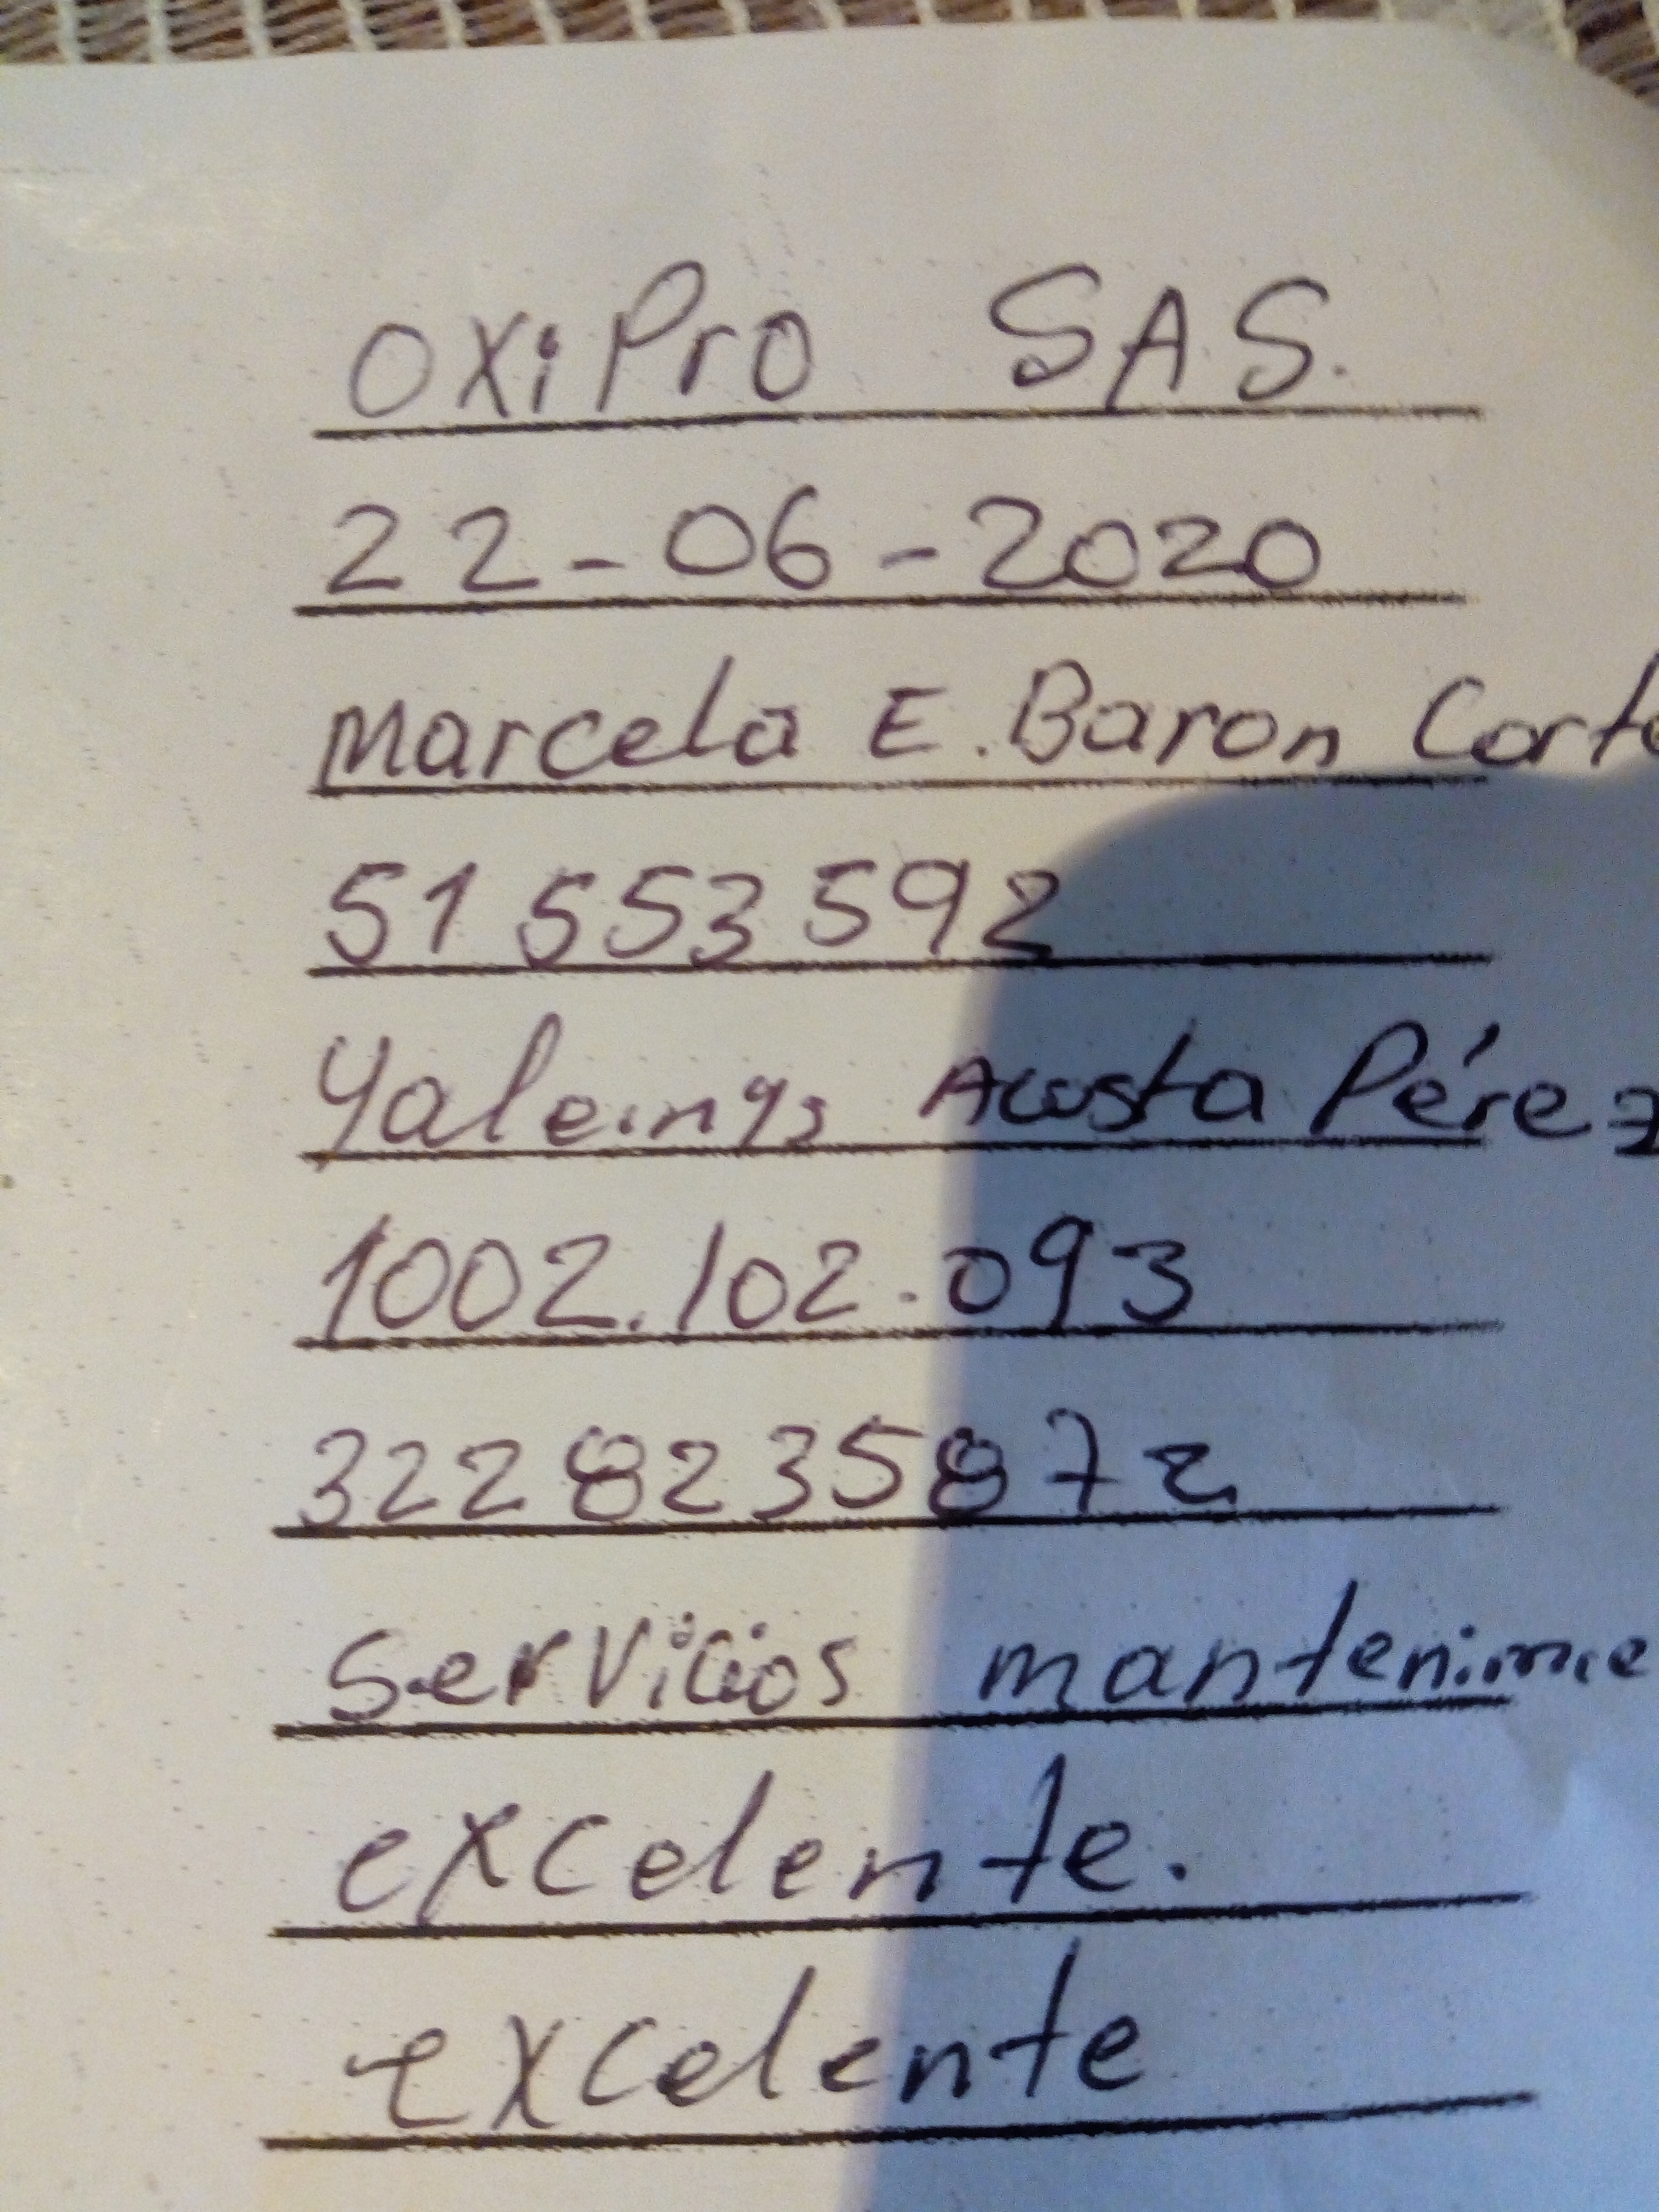 OXiPro SAS.
22-06-2020
Marcela E. Baron Corte
51 553 592
Yaleinys Acosta Pérez
1002.102.093
322 8235872
Servicios mantenimie
excelente.
excelente